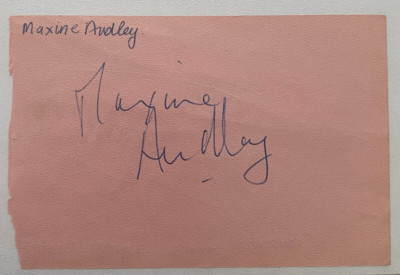 Maxine Audley
Maxine
Audley